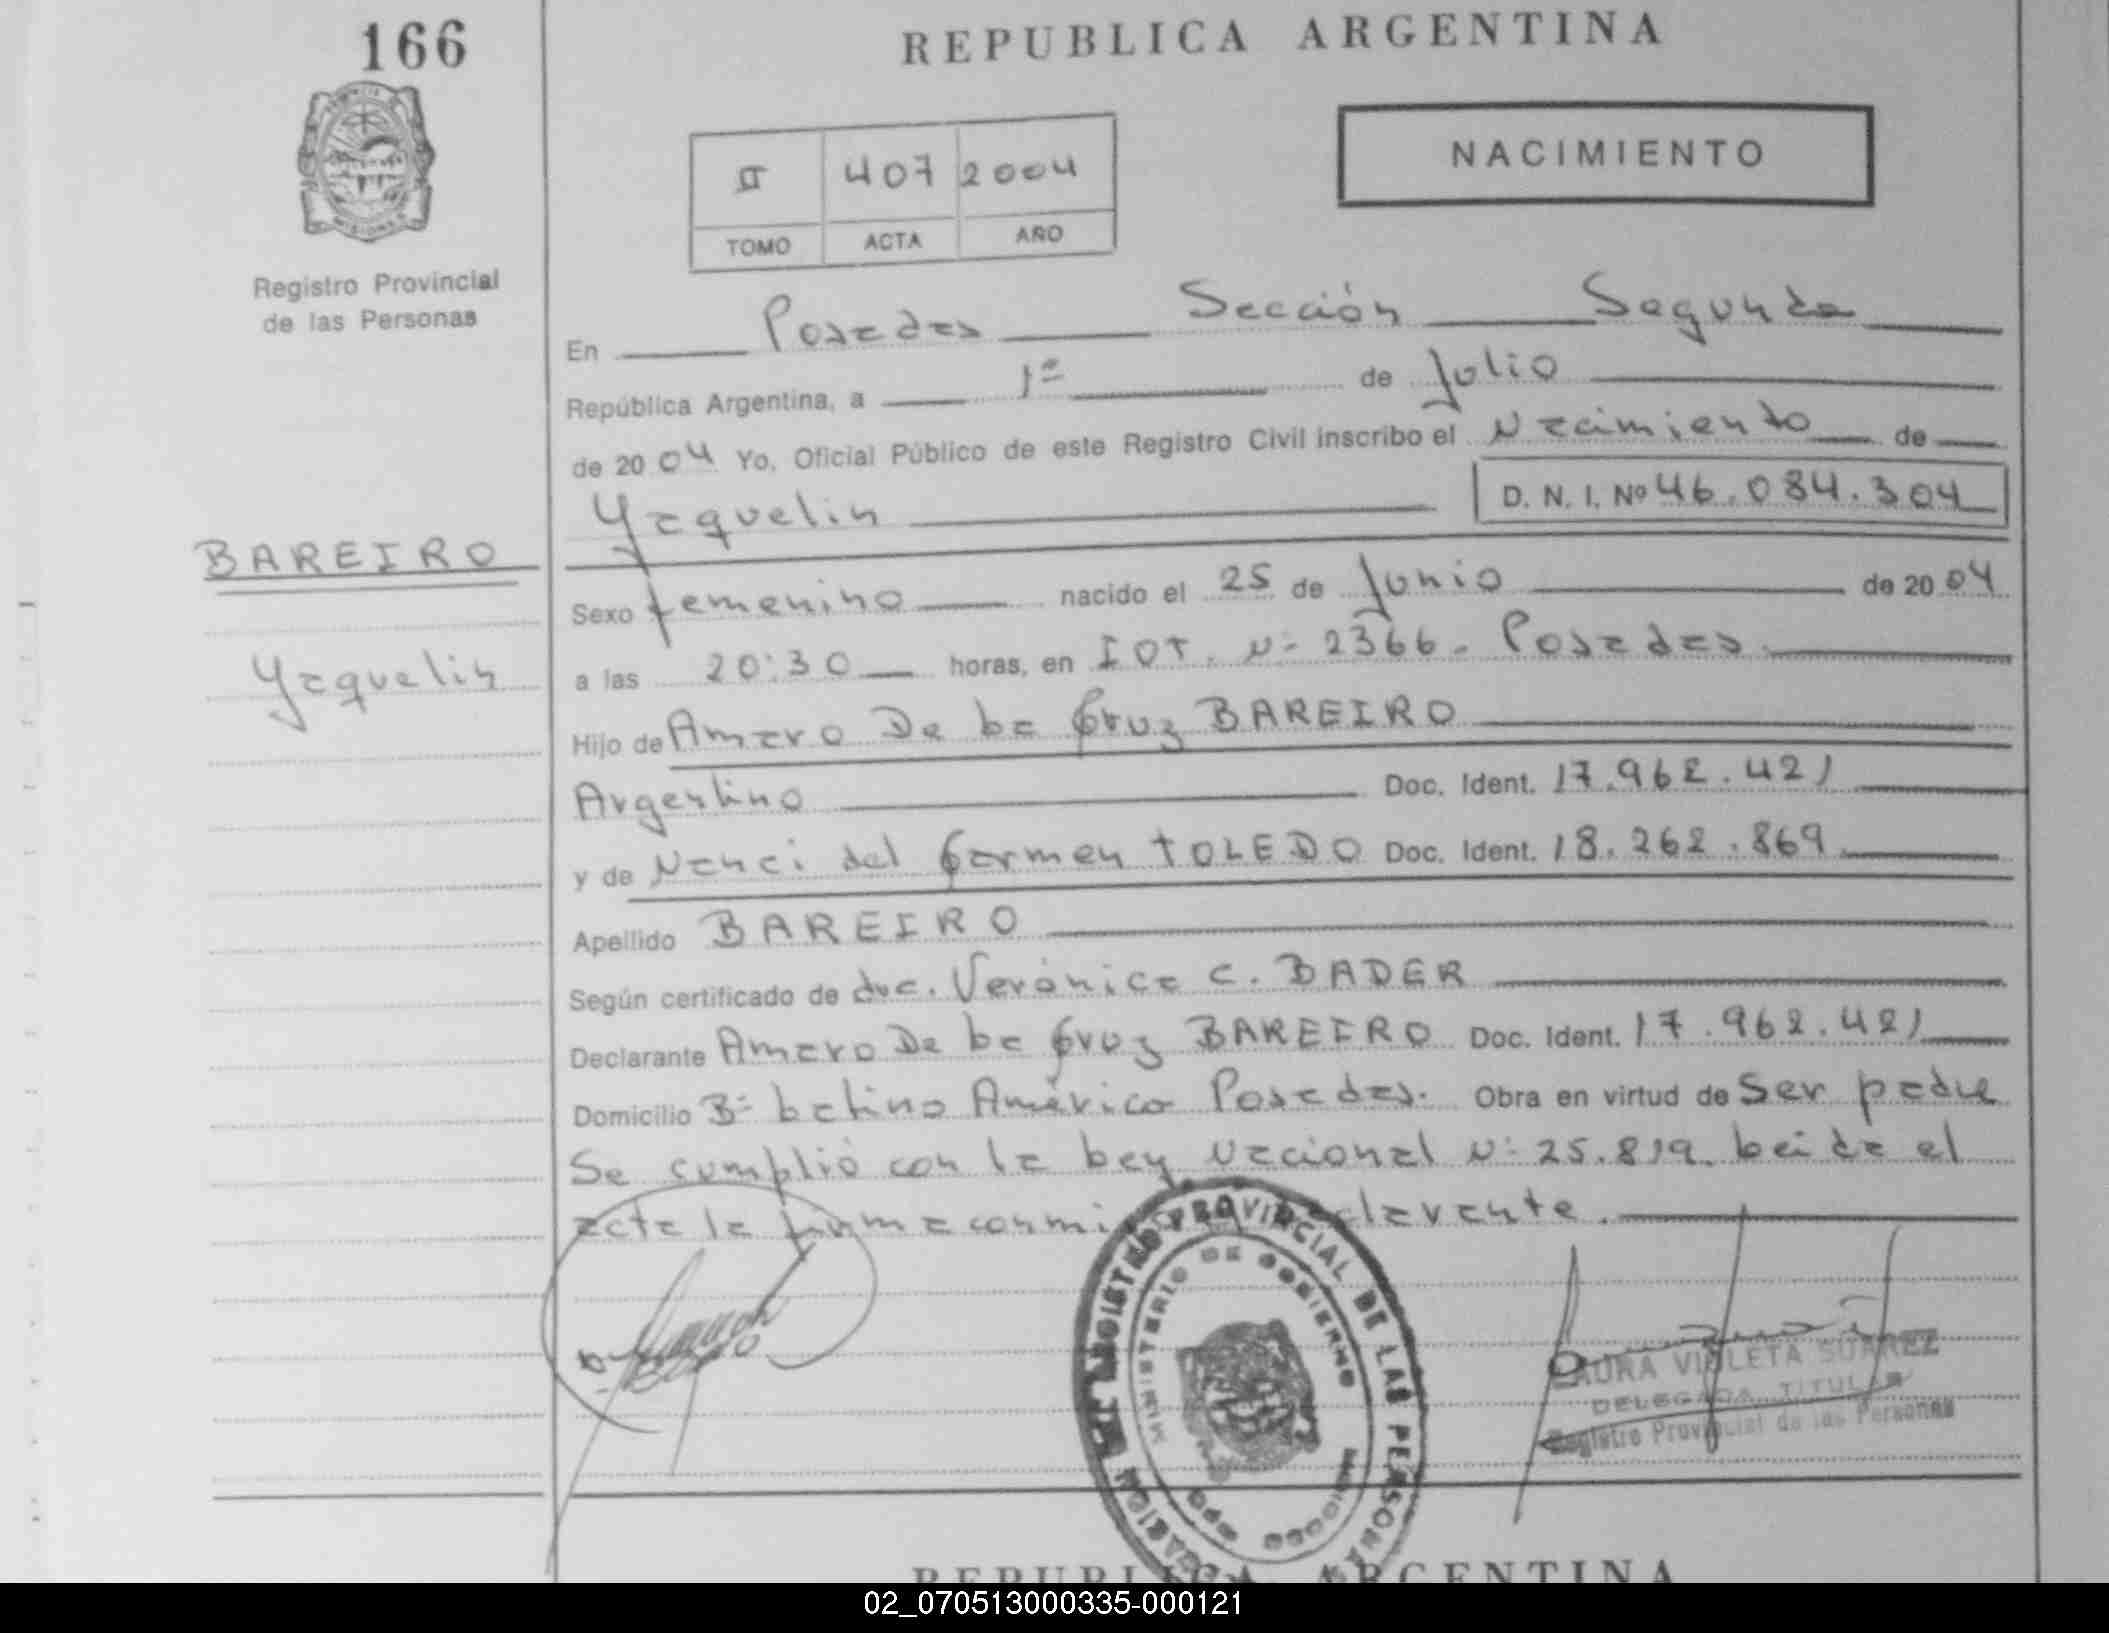 166
REPUBLICA ARGENTINA
NACIMIENTO
II 407 2004
TOMO ACTA AÑO
Registro Provincial
de las Personas
En Posadas Sección Segunda
República Argentina, a 1º de Julio
de 2004 Yo, Oficial Público de este Registro Civil inscribo el Nacimiento de
Yaquelin D. N. I. Nº 46.084.304
BAREIRO
Yaquelin
Sexo femenino nacido el 25 de Junio de 2004
a las 20:30 horas, en IOT. Nº 2366. Posadas.
Hijo de Amaro De La Cruz BAREIRO
Argentino Doc. Ident. 17.962.421
y de Nanci del Carmen TOLEDO Doc. Ident. 18.262.869
Apellido BAREIRO
Según certificado de doc. Verónica C. BADER
Declarante Amaro De La Cruz BAREIRO Doc. Ident. 17.962.421
Domicilio Bº Latino América Posadas. Obra en virtud de Ser padre
Se cumplió con la Ley Nacional Nº 25.819. Leida el
acta la firma conmi clarante.
REGISTRO PROVINCIAL DE LAS PERSONAS
MINISTERIO DE GOBIERNO
LAURA VIOLETA SUAREZ
DELEGADA TITULAR
Registro Provincial de las Personas
REPUBLICA ARGENTINA
02_070513000335-000121